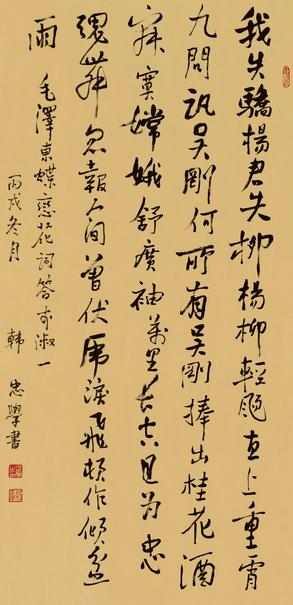 我失驕楊君失柳楊柳輕颺直上重霄
九問訊吳剛何所有吳剛捧出桂花酒
寂寞嫦娥舒廣袖萬里長空且為忠
魂舞忽報人间曾伏虎淚飛頓作傾盆
雨 毛澤東蝶戀花詞答李淑一
丙戌冬月 韓忠學書